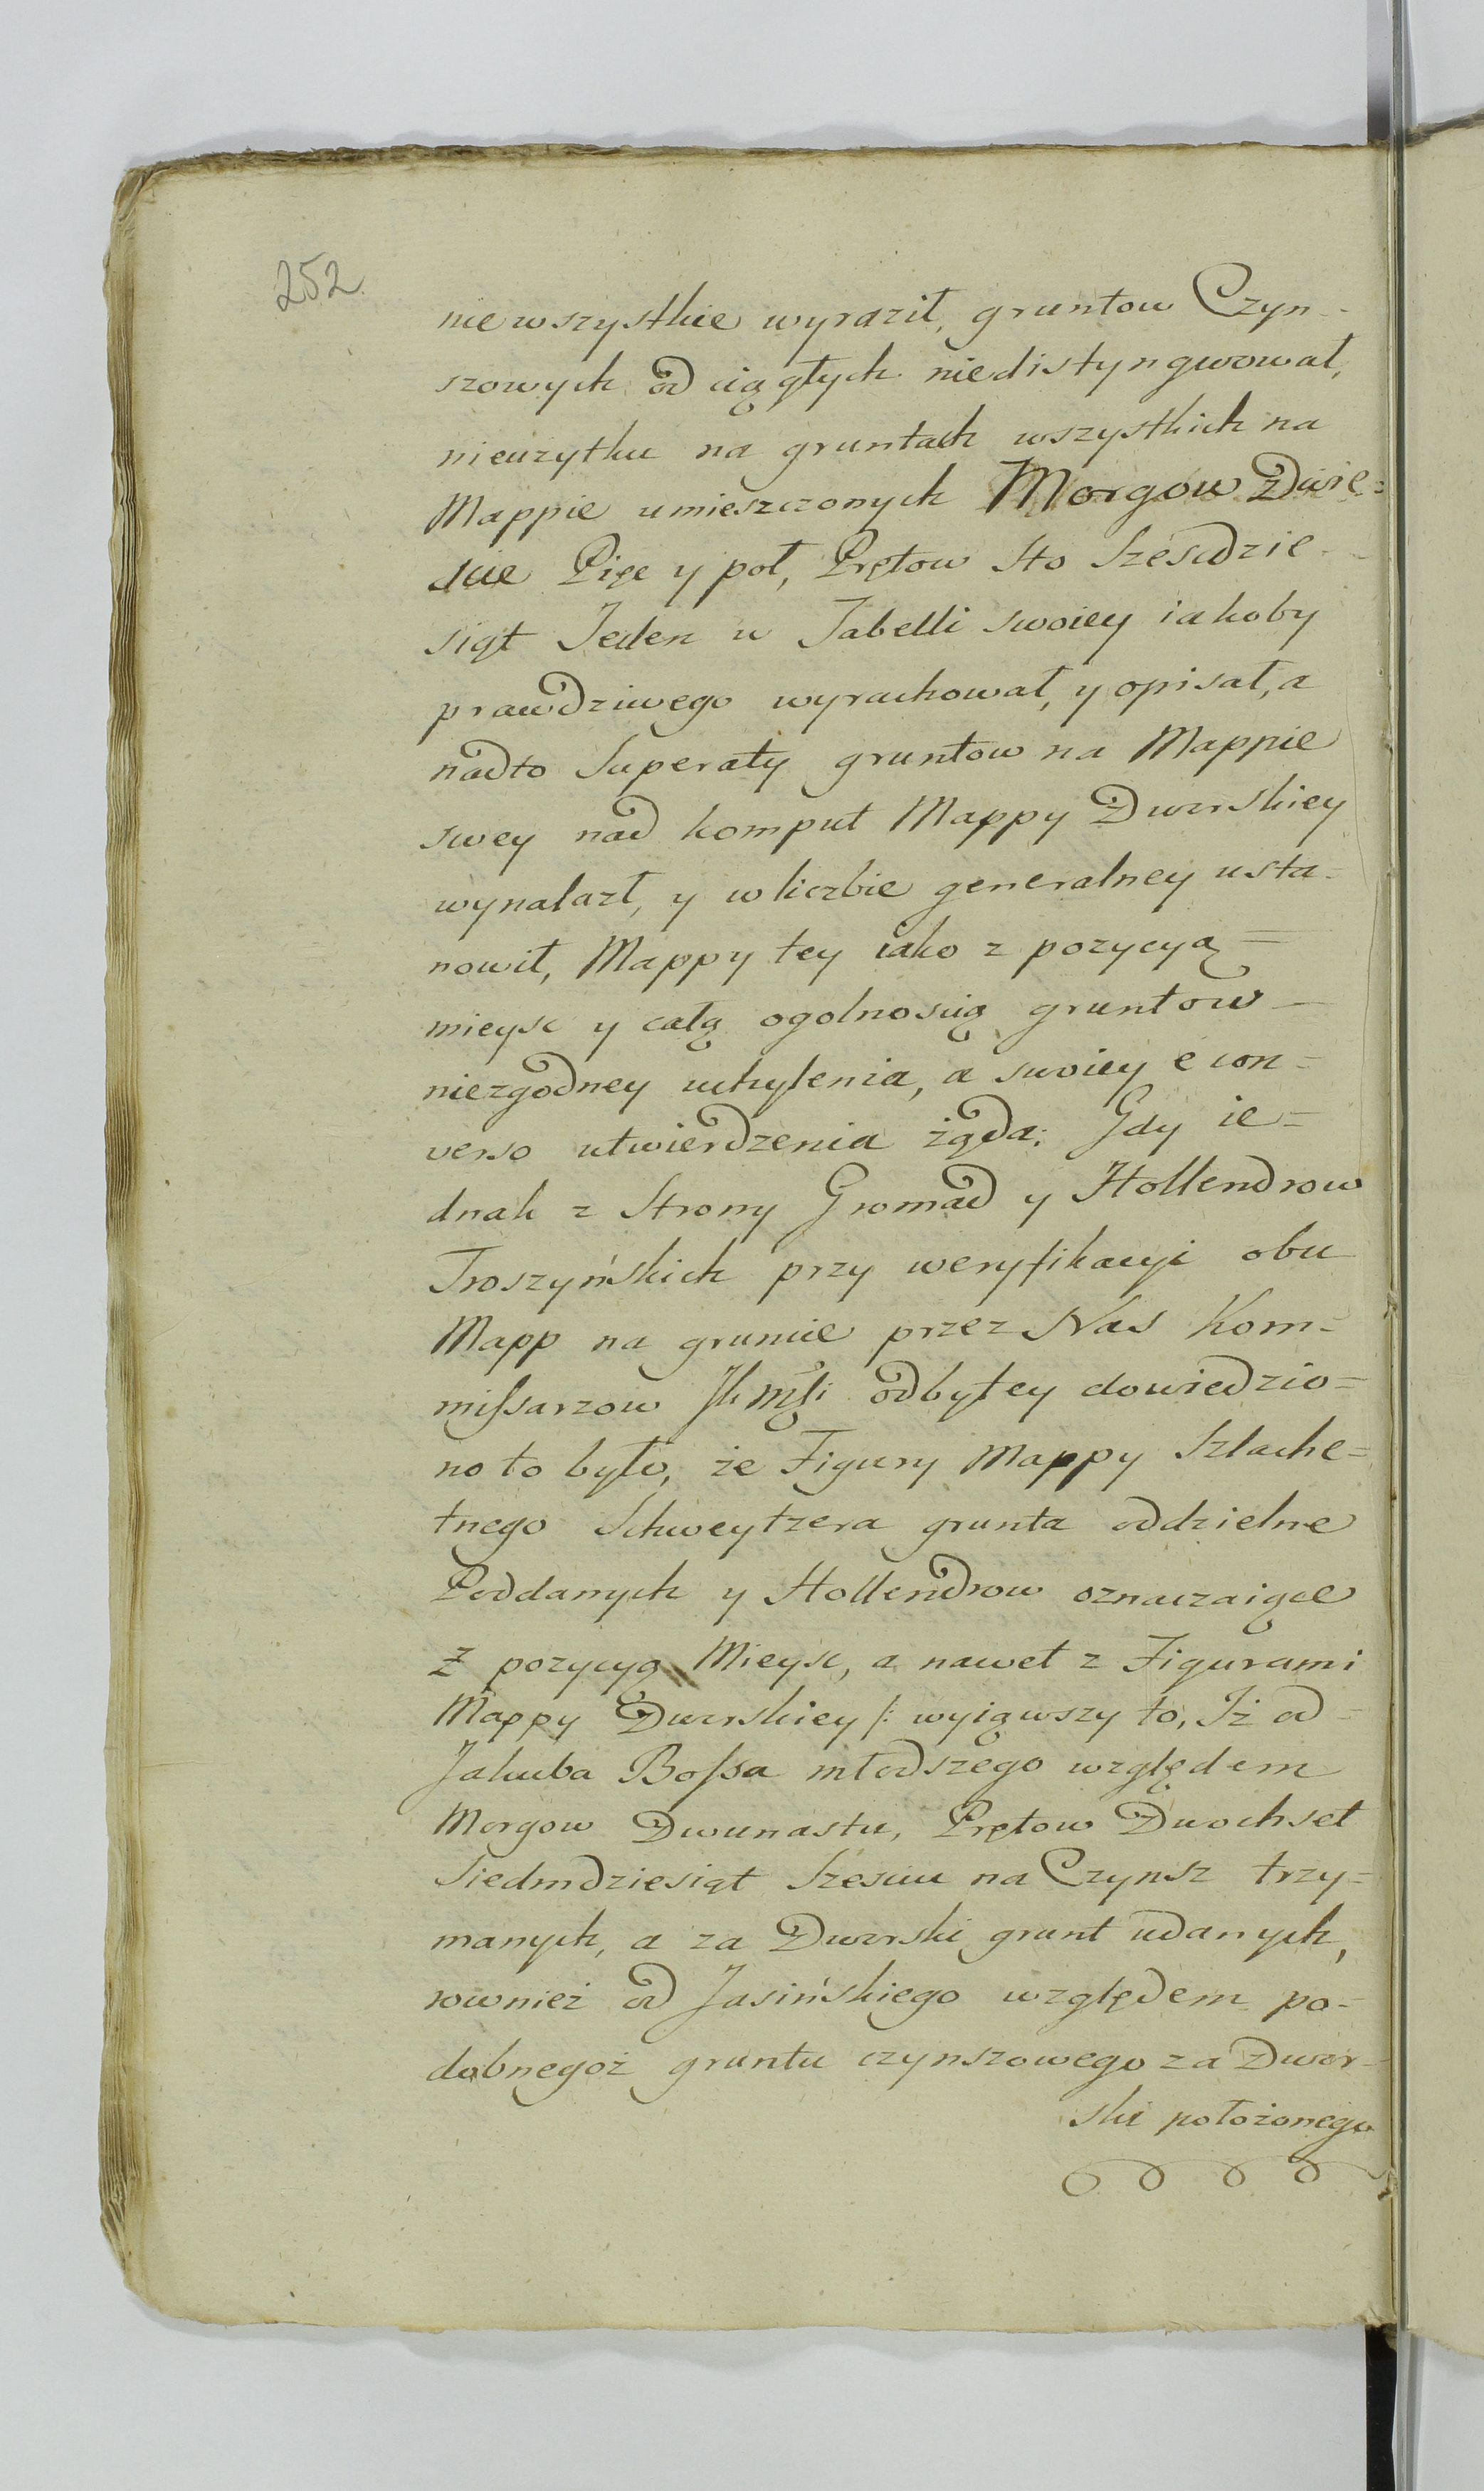 252.
niewszystkie wyraził, gruntow Czyn-
szowych od ciągłych niedistyngwował,
nieużytku na gruntach wszystkich na
Mappie umieszczonych Morgow Dwie=
scie Pięc y poł, Prętow Sto Szescdzie-
siąt Jeden w Tabelli swoiey iakoby
prawdziwego wyrachował, y opisał, a
nadto Superaty gruntow na Mappie
swey nad komput Mappy Dworskiey
wynalazł, y w liczbie generalney usta=
nowił, Mappy tey iako z pozycyą =
mieysc y całą ogolnoscią gruntow -
niezgodney uchylenia, a swoiey e con=
verso utwierdzenia żąda; Gdy ie=
dnak z Strony Gromad y Hollendrow
Troszyńskich przy weryfikacyi obu
Mapp na gruncie przez Nas Kom=
missarzow JKMsci odbytey dowiedzio=
no to było, że Figury Mappy Szlache=
tnego Schweytzera grunta oddzielne
Poddanych y Hollendrow oznaczaiące
z pozycyą Mieysc, a nawet z Figurami
Mappy Dworskiey /: wyiąwszy to, Iż od=
Jakuba Bossa młodszego względem
Morgow Dwunastu, Prętow Dwochset
Siedmdziesiąt Szesciu na Czynsz trzy=
manych, a za Dworski grunt udanych,
rownież od Jasińskiego względem po-
dobnegoż gruntu czynszowego za Dwor-
ski położonego